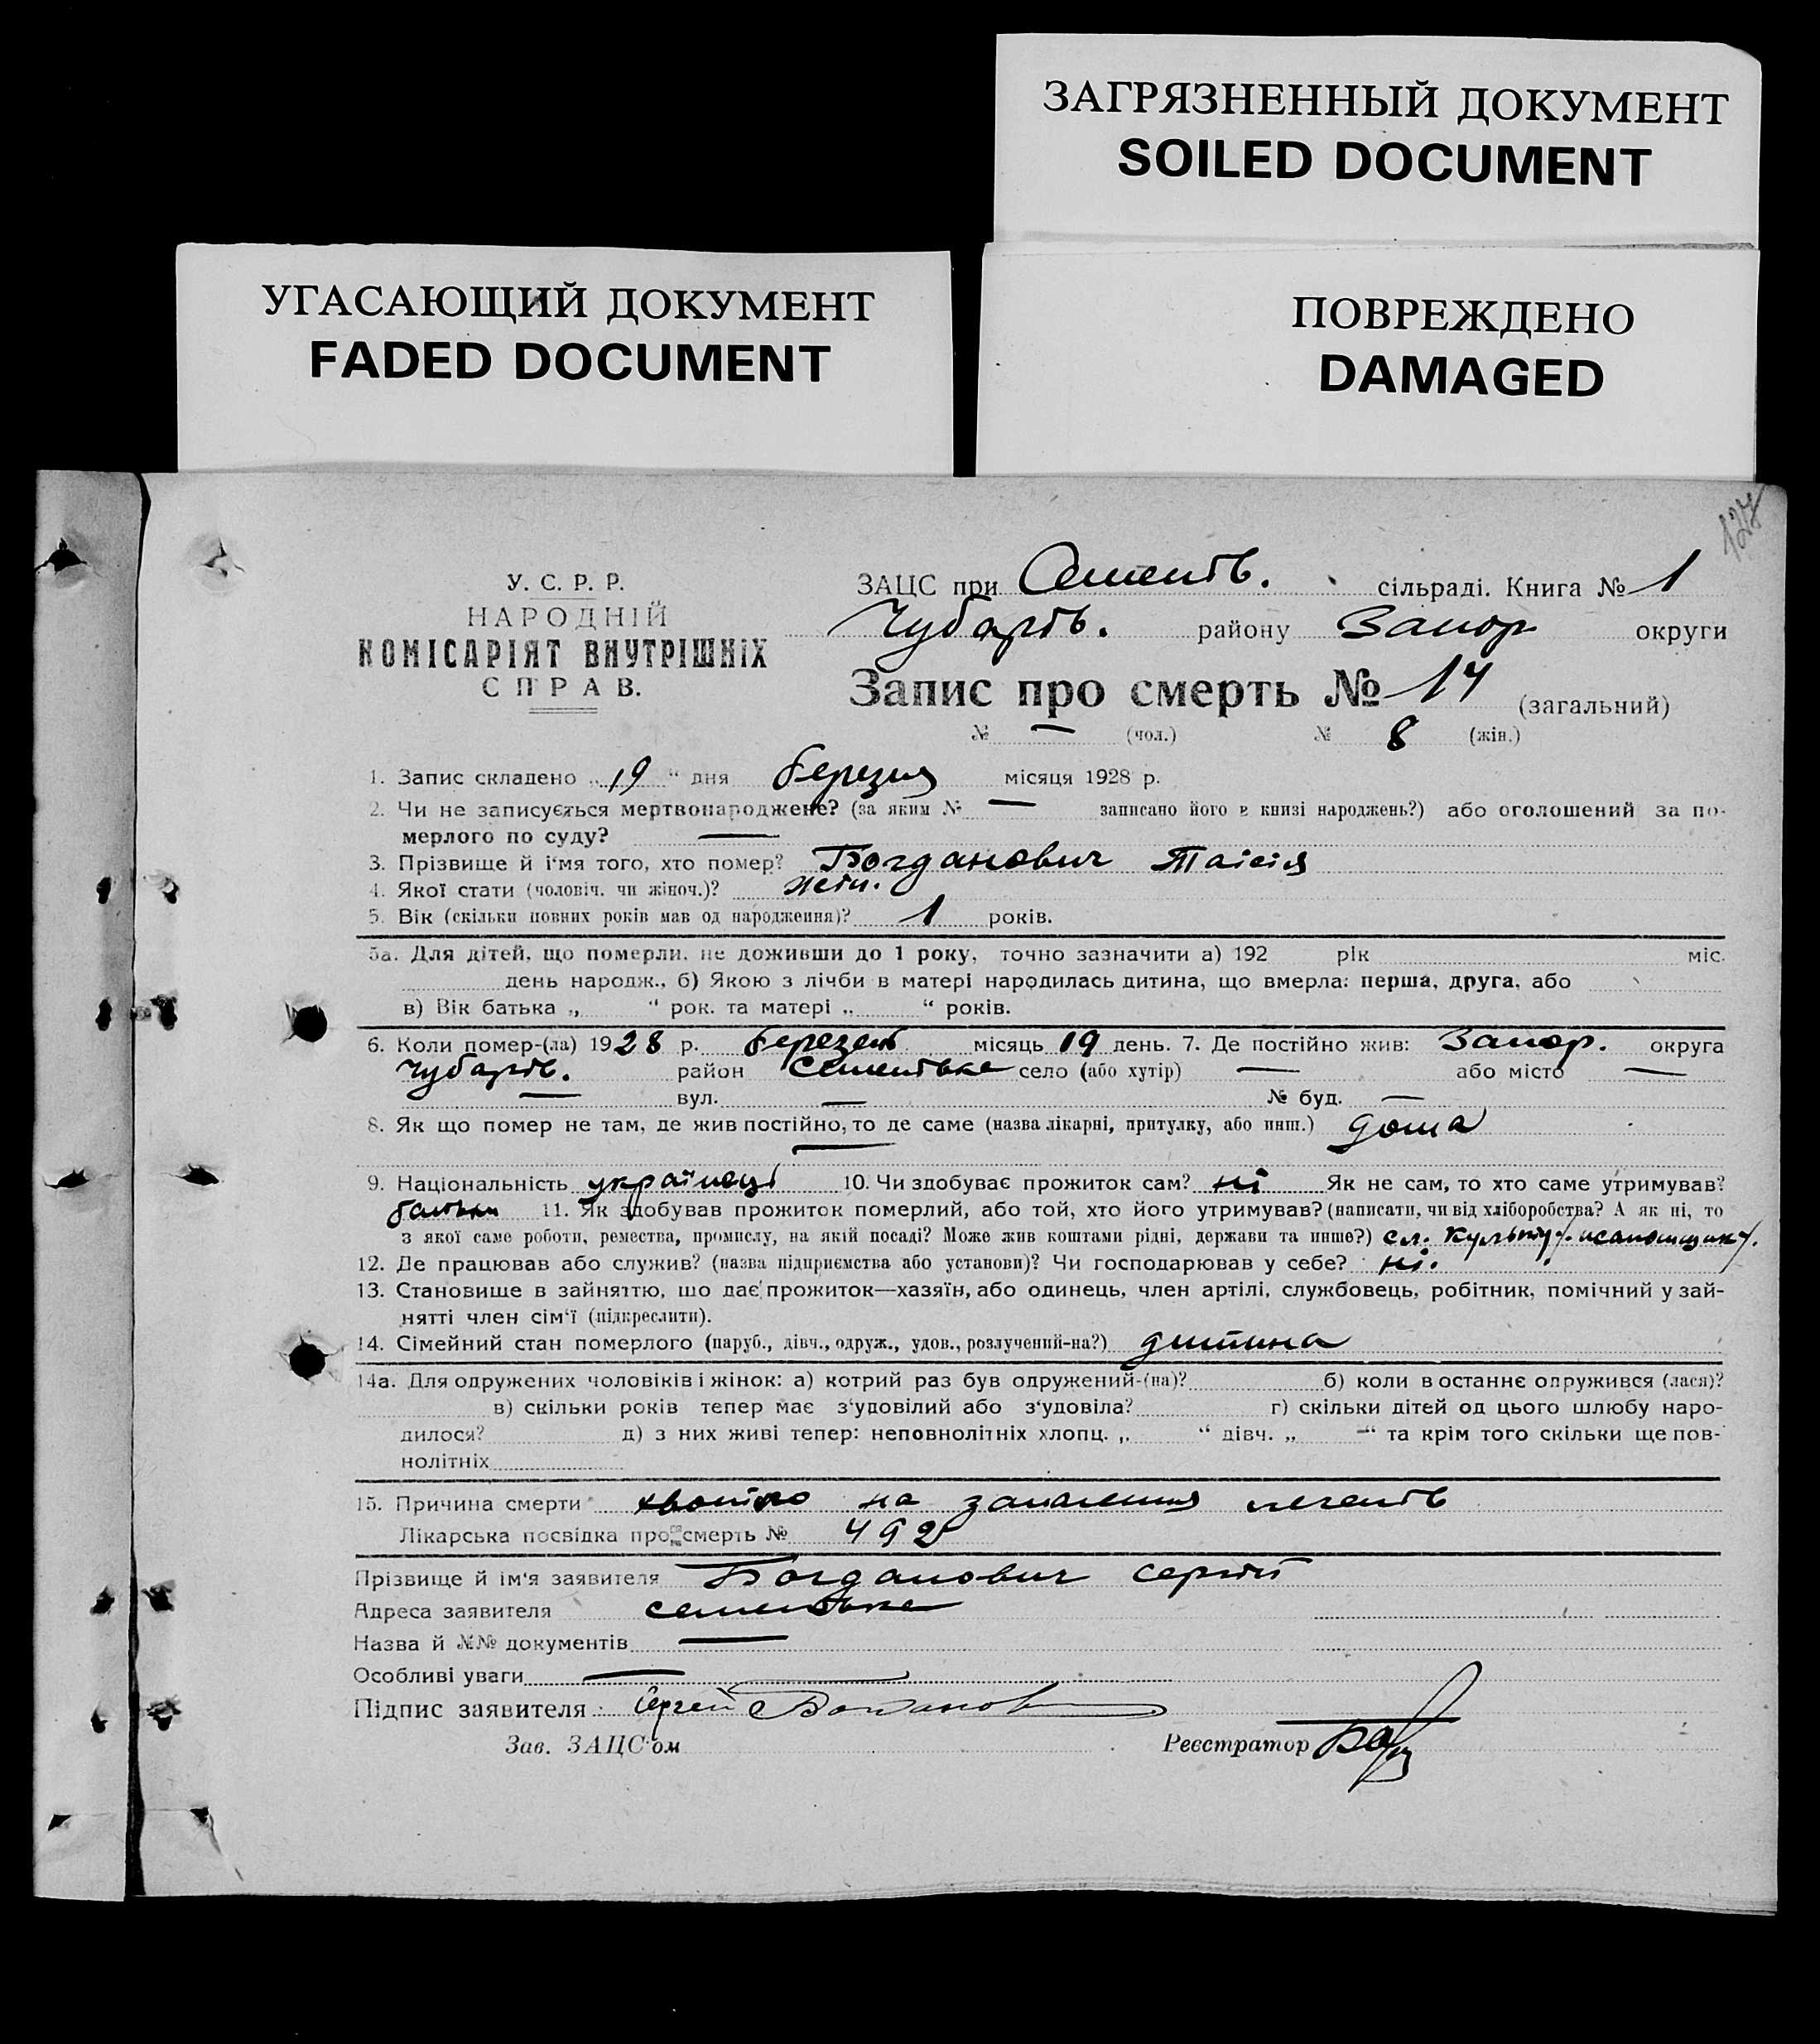 ЗАГРЯЗНЕННЫЙ ДОКУМЕНТ
SOILED DOCUMENT
УГАСАЮЩИЙ ДОКУМЕНТ
FADED DOCUMENT
ПОВРЕЖДЕНО
DAMAGED
127
У. С. Р. Р.
НАРОДНІЙ
КОМІСАРІЯТ ВНУТРІШНІХ
СПРАВ.
ЗАЦС при сільраді. Книга № 1
Чубарів. району Запор округи
Запис про смерть № 14 (загальний)
№ — (чол.) № 8 (жін.)
1. Запис складено „ 19 “ дня березня місяця 1928 р.
2. Чи не записується мертвонароджене? (за яким № — записано його в книзі народжень?) або оголошений за по-
мерлого по суду? —
3. Прізвище й ім'я того, хто помер? Богданович Таісія
4. Якої стати (чоловіч. чи жіноч.)? жін.
5. Вік (скільки повних років мав од народження)? 1 років.
5а. Для дітей, що померли, не доживши до 1 року, точно зазначити а) 192 рік міс.
день народж., б) Якою з лічби в матері народилась дитина, що вмерла: перша, друга, або
в) Вік батька „ “ рок. та матері „ “ років.
6. Коли помер-(ла) 1928 р. березень місяць 19 день. 7. Де постійно жив: Запор. округа
Чубарів. район Семенівка село (або хутір) — або місто —
— вул. — № буд. —
8. Як що помер не там, де жив постійно, то де саме (назва лікарні, притулку, або инш.) дома
—
9. Національність українець 10. Чи здобуває прожиток сам? ні Як не сам, то хто саме утримував?
батьки 11. Як здобував прожиток померлий, або той, хто його утримував? (написати, чи від хліборобства? А як ні, то
з якої саме роботи, ремества, промислу, на якій посаді? Може жив коштами рідні, держави та инше?) сл.
12. Де працював або служив? (назва підприємства або установи)? Чи господарював у себе? ні.
13. Становище в зайняттю, що дає прожиток—хазяїн, або одинець, член артілі, службовець, робітник, помічний у зай-
нятті член сім'ї (підкреслити).
14. Сімейний стан померлого (паруб., дівч., одруж., удов., розлучений-на?) дитина
14а. Для одружених чоловіків і жінок: а) котрий раз був одружений-(на)? б) коли в останнє одружився (лася)?
в) скільки років тепер має з'удовілий або з'удовіла? г) скільки дітей од цього шлюбу наро-
дилося? д) з них живі тепер: неповнолітніх хлопц. „ “ дівч. „ “ та крім того скільки ще пов-
нолітніх
15. Причина смерти на запалення легенів
Лікарська посвідка про смерть № 492
Прізвище й ім'я заявителя Богданович Сергій
Адреса заявителя Семенівка
Назва й №№ документів —
Особливі уваги —
Підпис заявителя Сергей Богданов
Зав. ЗАЦС'ом Реєстратор